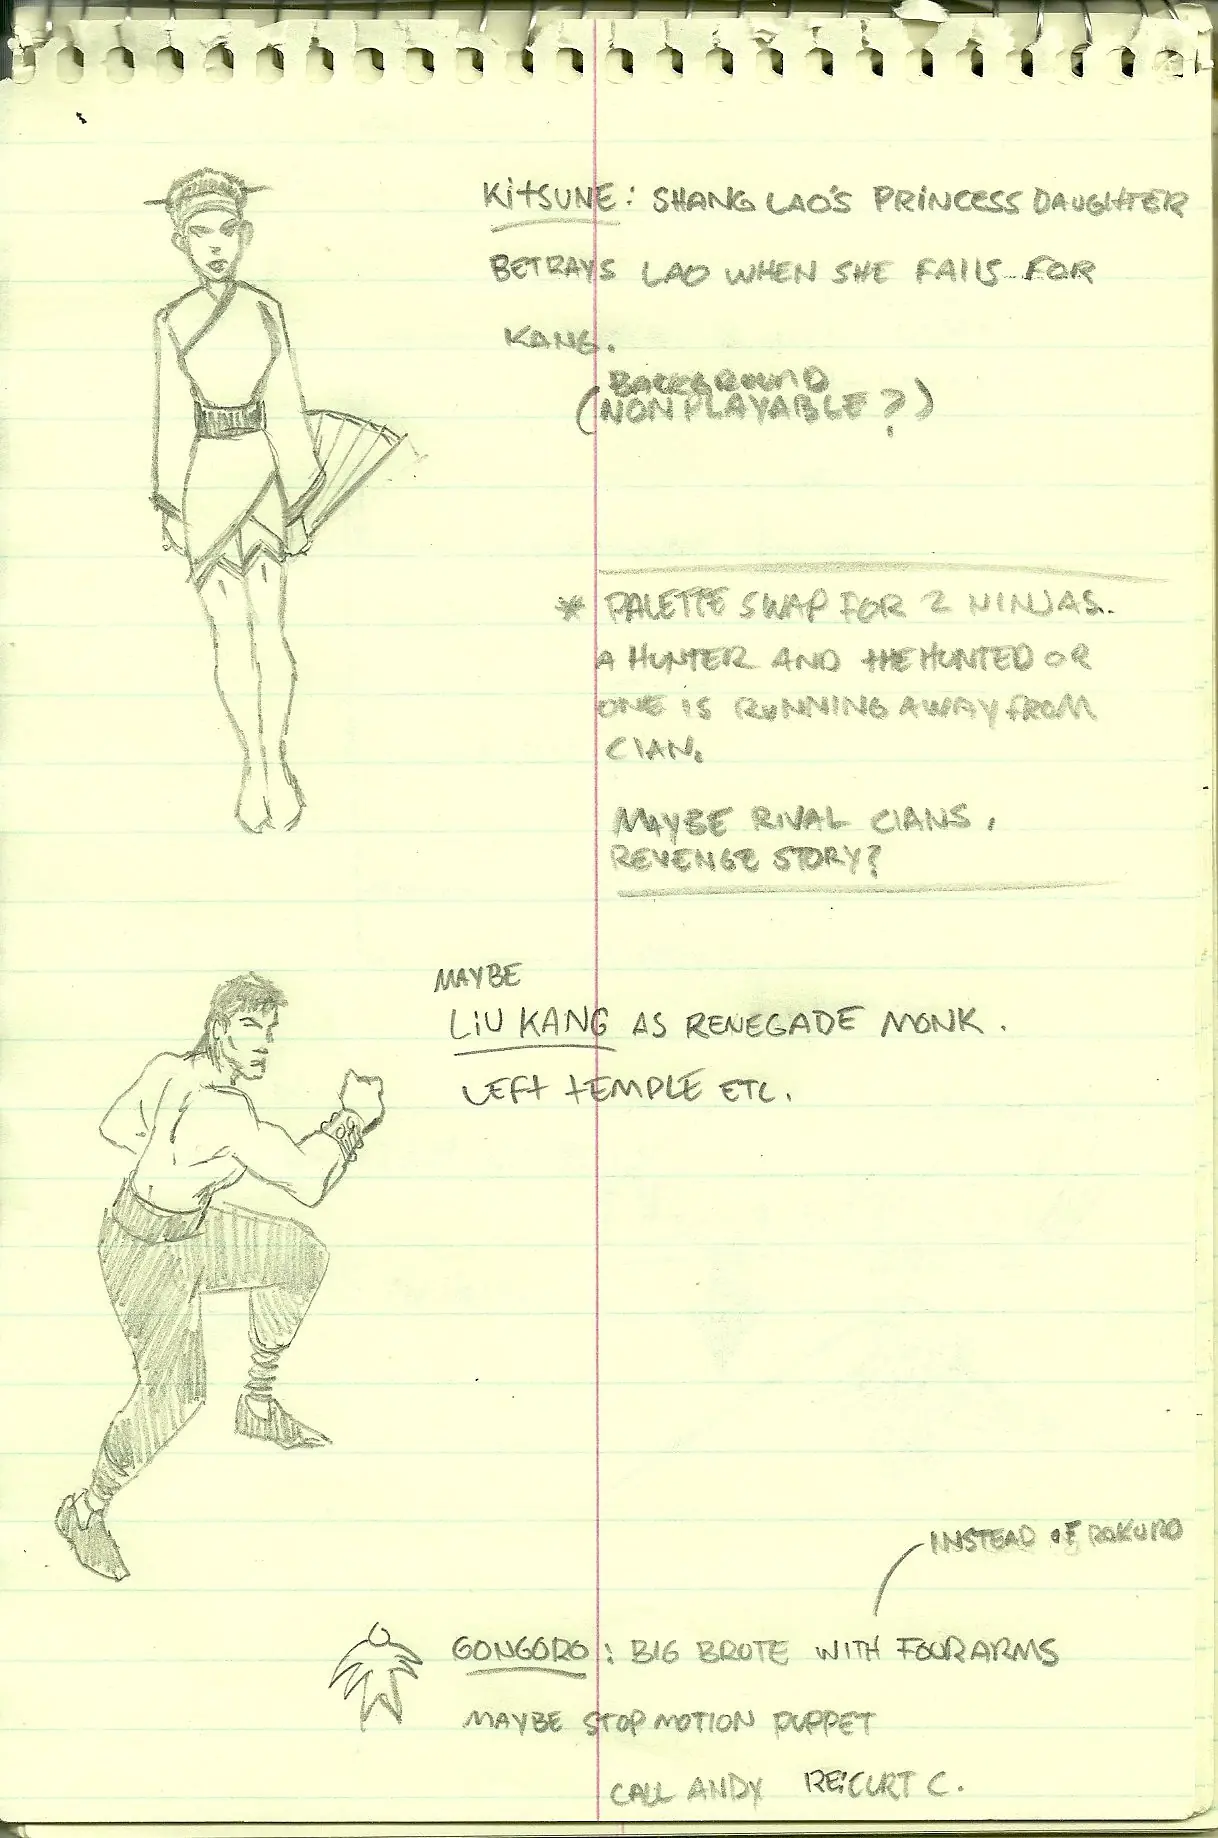 KITSUNE: SHANG LAO'S PRINCESS DAUGHTER
BETRAYS LAO WHEN SHE FALLS FOR
KANG.
BACKGROUND
(NONPLAYABLE?)
* PALETTE SWAP FOR 2 NINJAS.
A HUNTER AND THE HUNTED OR
ONE IS RUNNING AWAY FROM
CLAN.
MAYBE RIVAL CLANS,
REVENGE STORY?
MAYBE
LIU KANG AS RENEGADE MONK.
LEFT TEMPLE ETC.
INSTEAD OF ROKURO
GONGORO: BIG BRUTE WITH FOUR ARMS
MAYBE STOP MOTION PUPPET
CALL ANDY RE: CURT C.